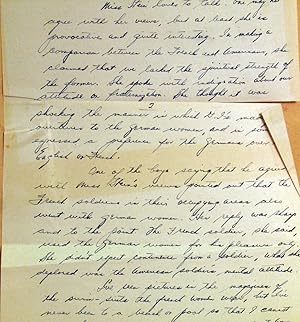 Miss Stein loves to talk. One may not
agree with her views, but at least, she is
provocative and quite interesting. In making a
comparison between the French and Americans, she
claimed that we lacked the spiritual strength of
the former. She spoke with indignation about our
attitude on fraternization. She thought it was
2
shocking the manner in which G.I's made
overtures to the German women, and in some
expressed a preference for the Germans over
English or French.
One of the boys saying that he agreed
with Miss Stein's views pointed out that the
French soldiers in their occupying areas also
went with German women. Her reply was sharp
and to the point. The French soldier, she said,
used the German women for his pleasure only.
She didn't expect continence from a soldier. What she
deplored was the American soldiers mental attitude.
I've seen pictures in the magazines of
the swim-suits the french women wear, but I've
never been to a beach or pool so that I cannot